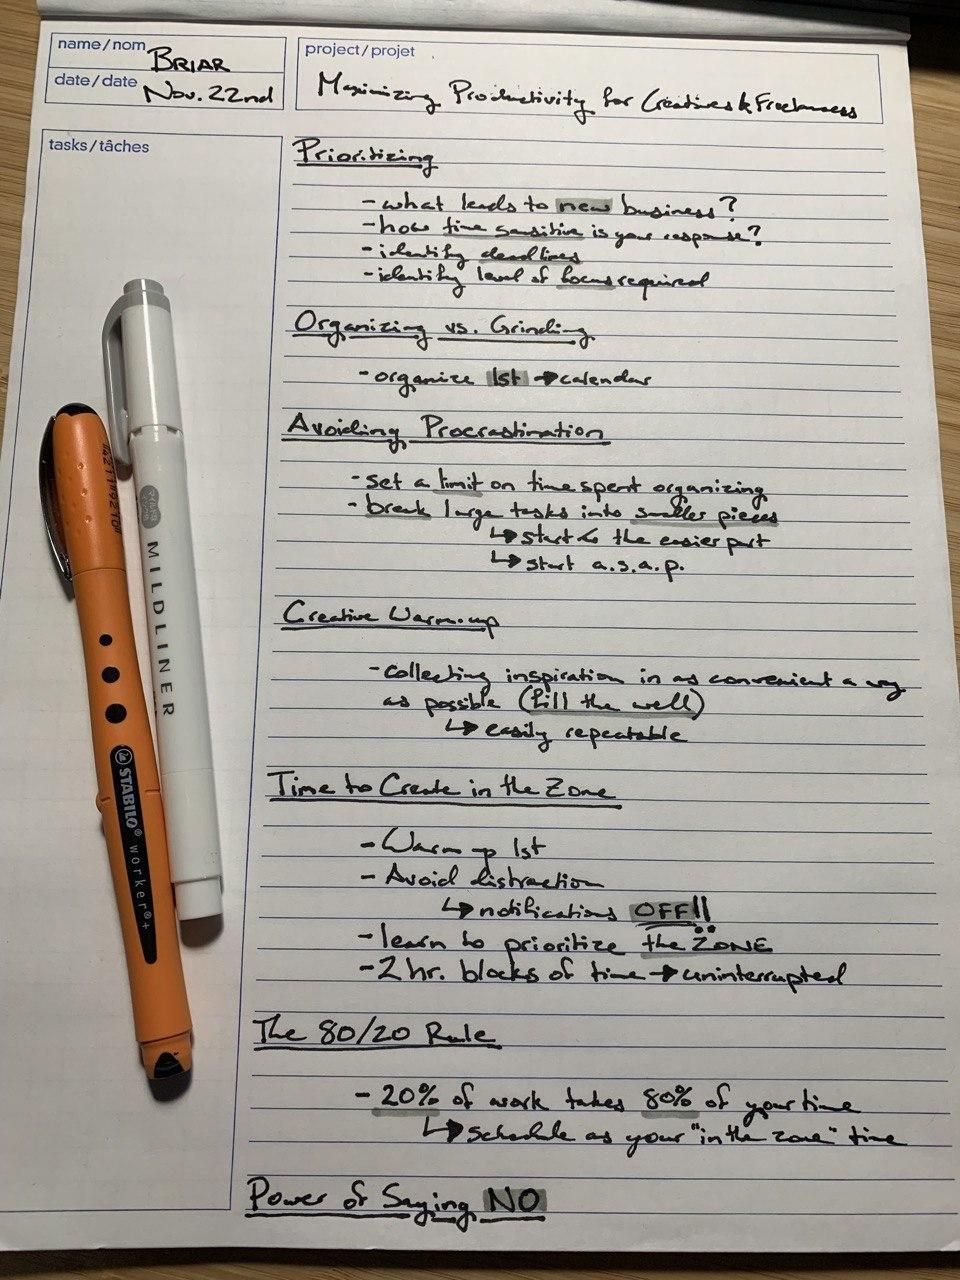 name/nom BRIAR
date/date Nov. 22nd
project/projet
Maximizing Productivity for Creatives & Freelancers
tasks/tâches
Prioritizing
- what leads to new business?
- how time sensitive is your response?
- identify deadlines
- identify level of focus required
Organizing vs. Grinding
- organize 1st → calendar
Avoiding Procrastination
- set a limit on time spent organizing
- break large tasks into smaller pieces
↳ start w the easier part
↳ start a.s.a.p.
Creative Warm-up
- collecting inspiration in as convenient a way
as possible (fill the well)
↳ easily repeatable
Time to Create in the Zone
- Warm up 1st
- Avoid distraction
↳ notifications OFF!!
- learn to prioritize the ZONE
- 2 hr. blocks of time → uninterrupted
The 80/20 Rule
- 20% of work takes 80% of your time
↳ schedule as your "in the zone" time
Power of Saying NO
MILDLINER
STABILO® worker®+